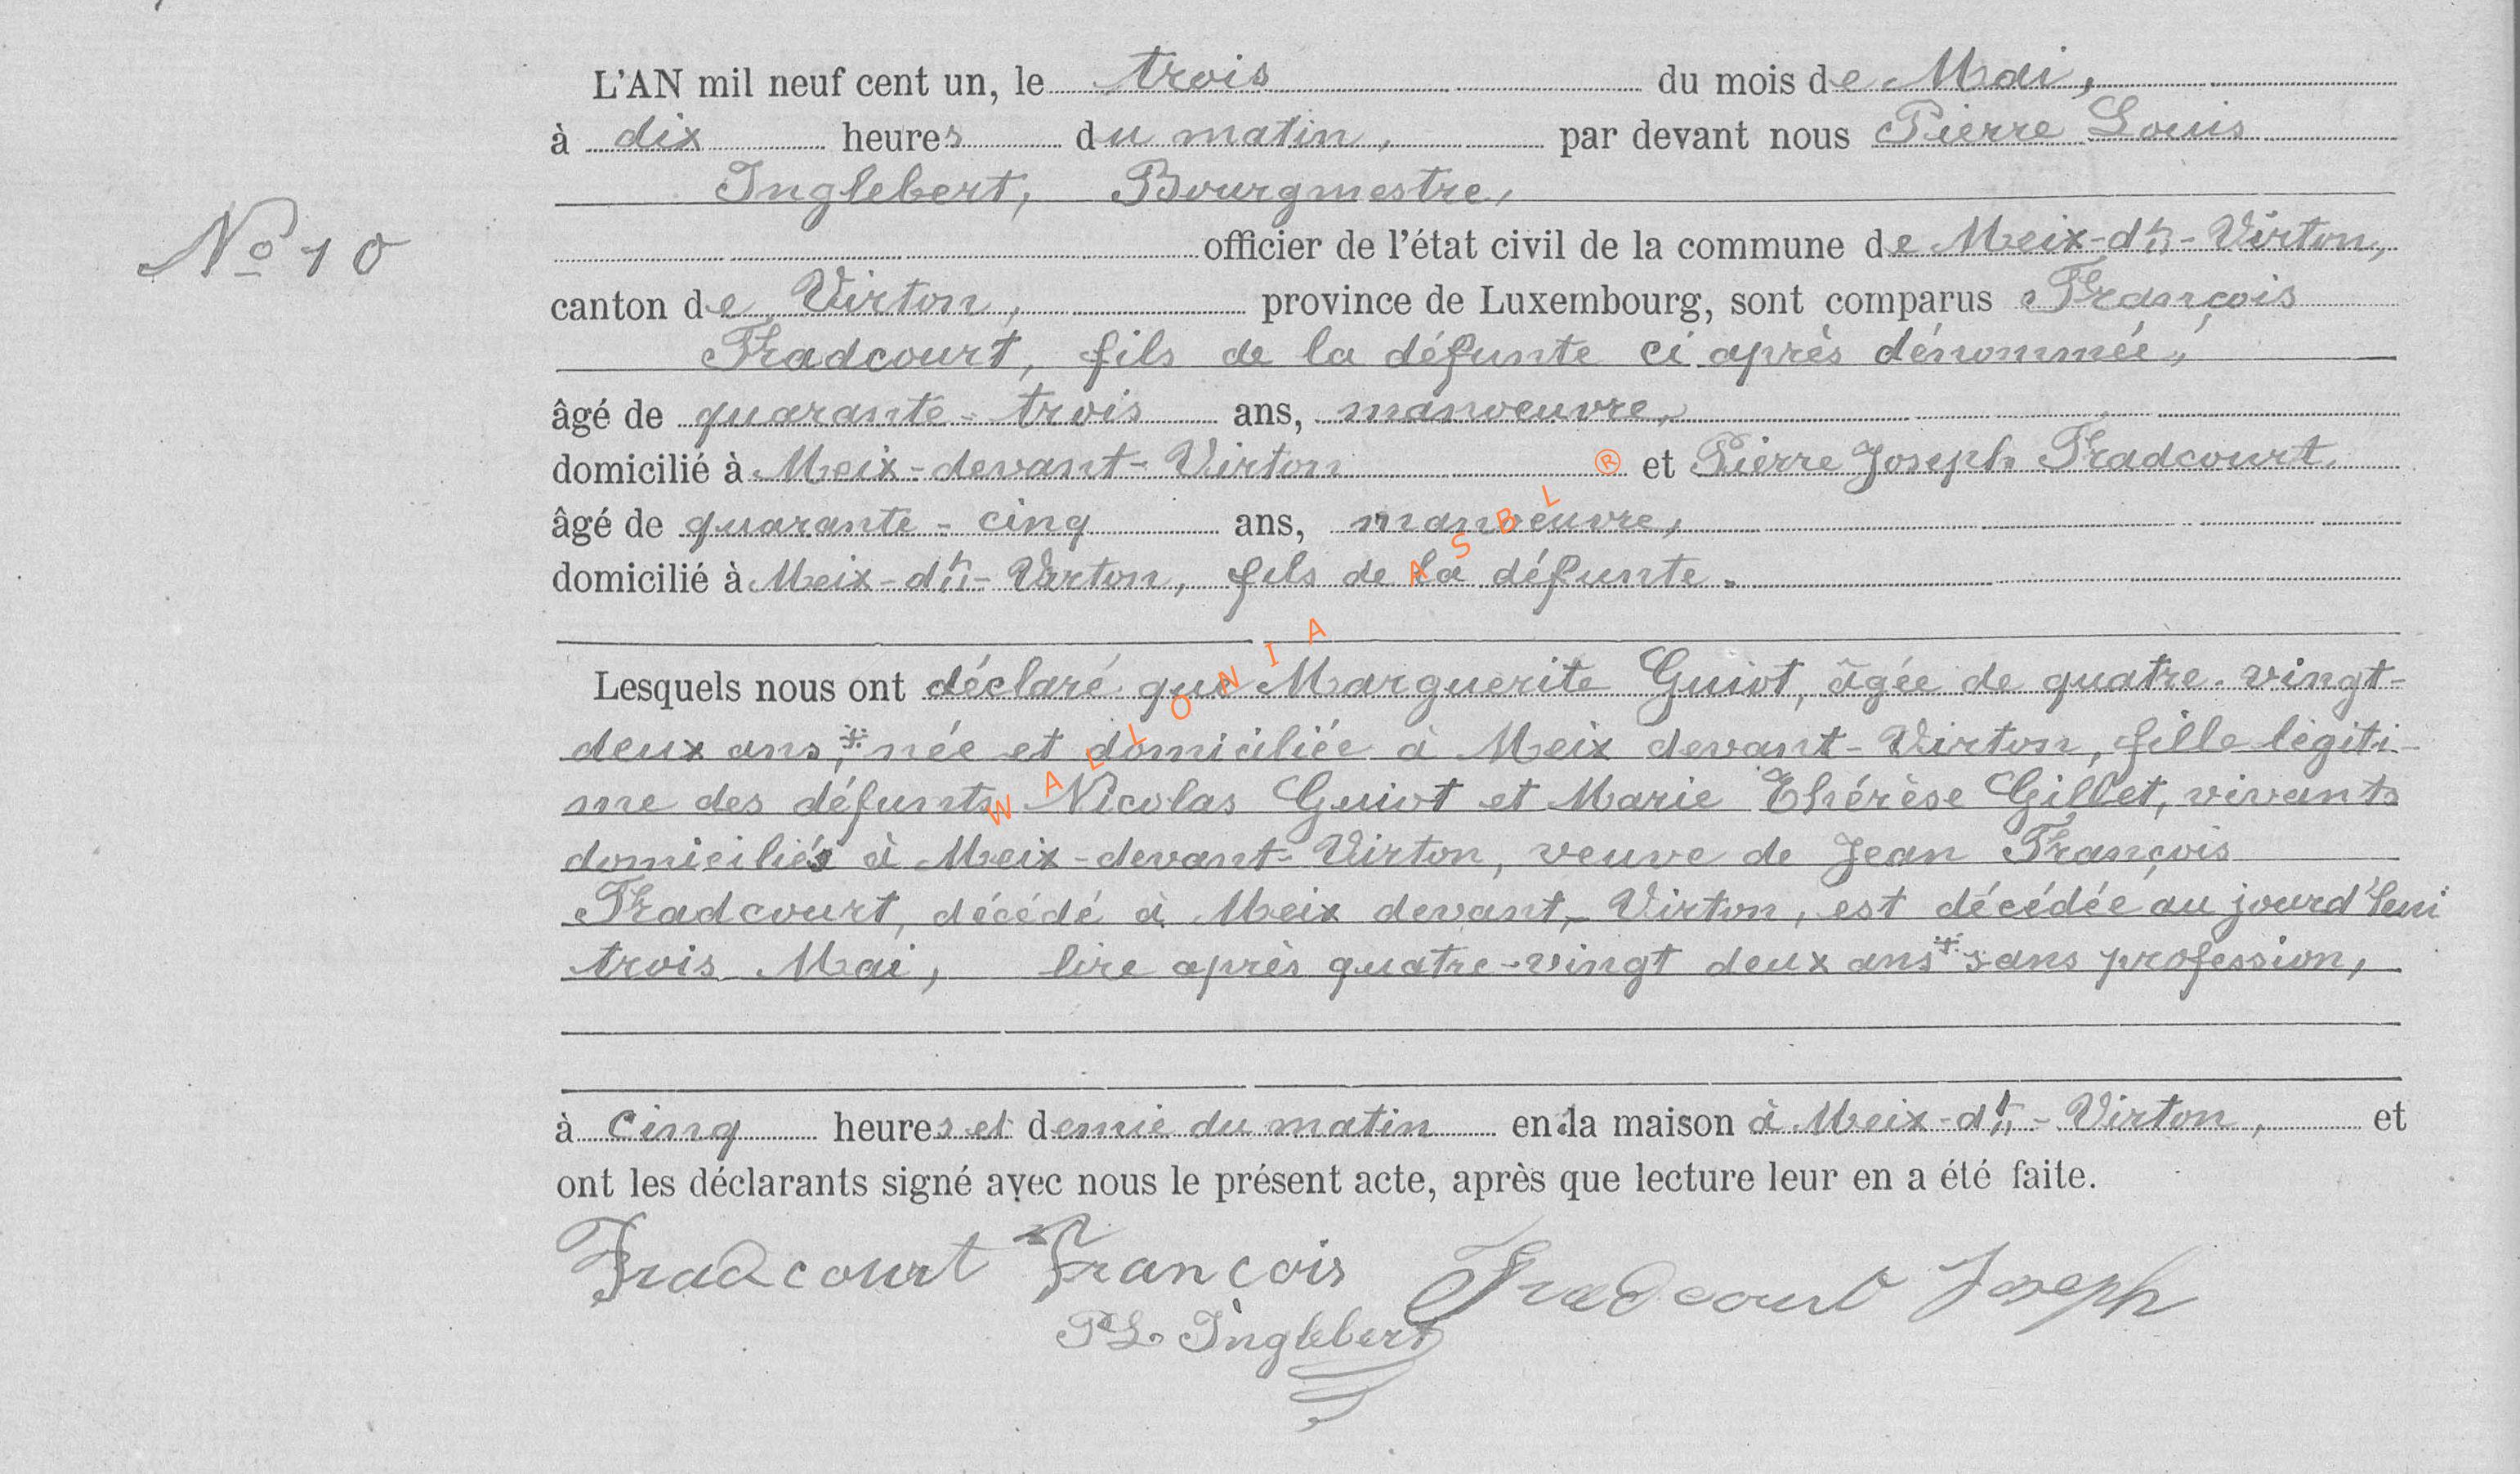 L'AN mil neuf cent un, le trois du mois de Mai,
à dix heures du matin, par devant nous Pierre Louis
Inglebert, Bourgmestre,
N° 10
officier de l'état civil de la commune de Meix-dt-Virton,
canton de Virton, province de Luxembourg, sont comparus François
Fradcourt, fils de la défunte ci après dénommée,
âgé de quarante-trois ans, manoeuvre,
domicilié à Meix-devant-Virton et Pierre Joseph Fradcourt
âgé de quarante-cinq ans, manoeuvre,
domicilié à Meix-dt-Virton, fils de la défunte.
Lesquels nous ont déclaré que Marguerite Guiot, âgée de quatre-vingt-
deux ans, née et domiciliée à Meix devant-Virton, fille légiti-
me des défunts Nicolas Guiot et Marie Thérèse Gillet, vivants
domiciliés à Meix-devant-Virton, veuve de Jean François
Fradcourt, décédé à Meix devant-Virton, est décédée au jourd'hui
trois Mai, lire après quatre-vingt deux ans sans profession,
à cinq heures et demie du matin en la maison à Meix-dt-Virton, et
ont les déclarants signé avec nous le présent acte, après que lecture leur en a été faite.
Fradcourt François Fradcourt Joseph
PL. Inglebert
WALLONIA ASBL ®